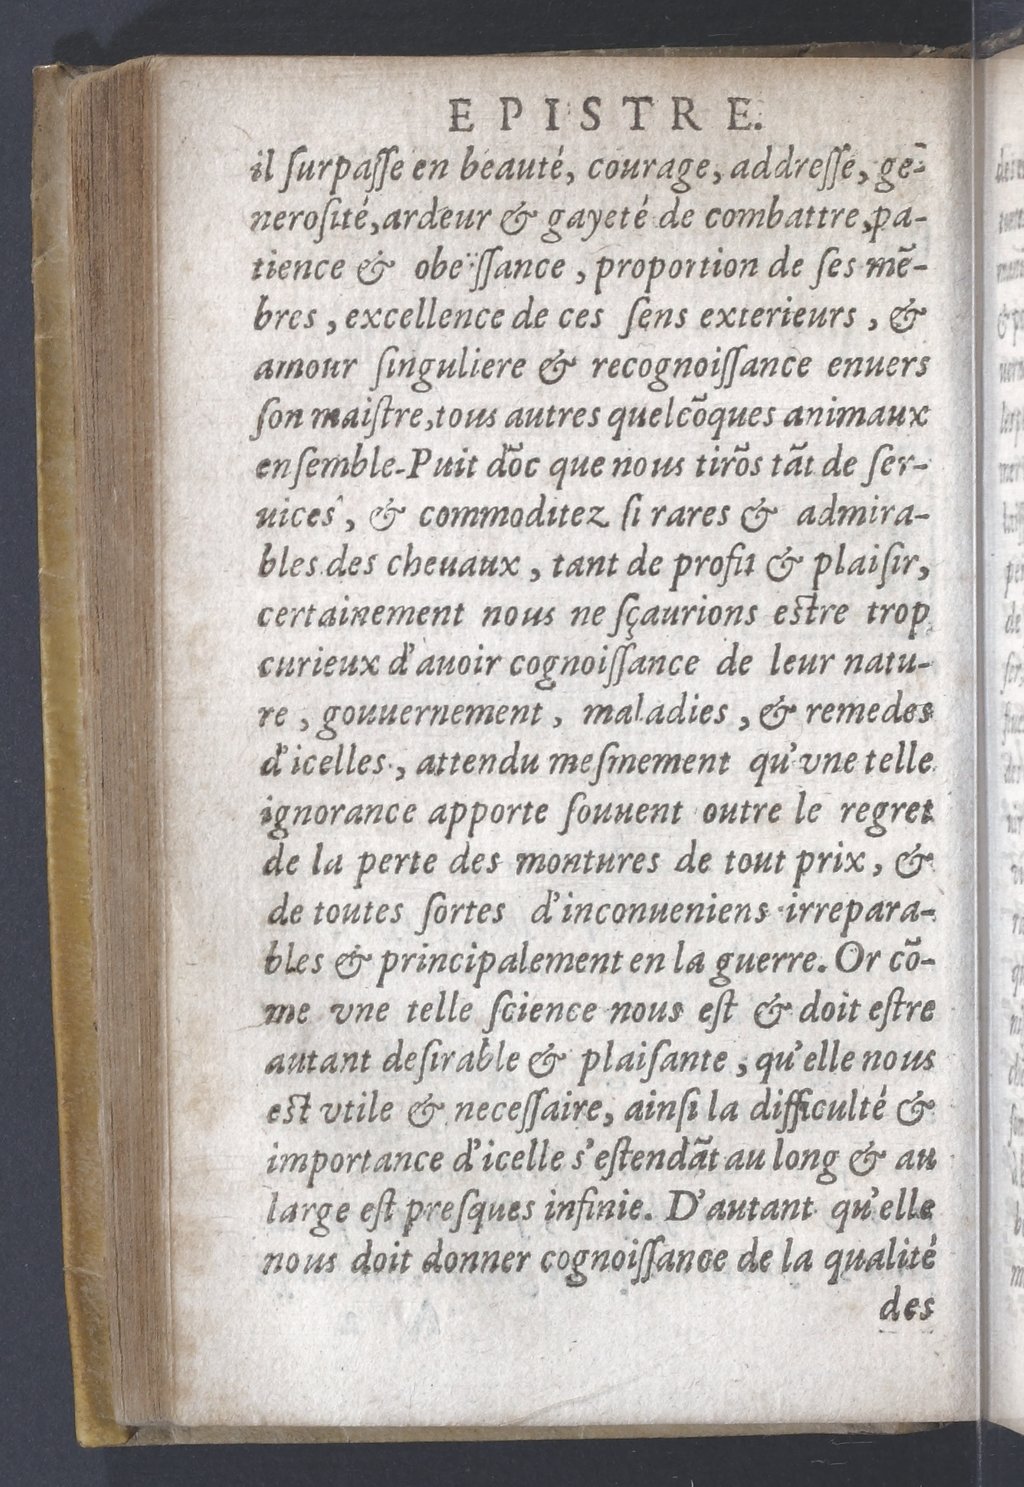 EPISTRE.
il ſurpaſſe en beauté, courage, addreſſe, ge-
neroſité, ardeur & gayeté de combattre, pa-
tience & obeïſſance, proportion de ſes mẽ-
bres, excellence de ces ſens exterieurs, &
amour ſinguliere & recognoiſſance enuers
ſon maiſtre, tous autres quelcõques animaux
enſemble. Puit dõc que nous tirõs tãt de ſer-
uices, & commoditez ſi rares & admira-
bles des cheuaux, tant de profit & plaiſir,
certainement nous ne ſçaurions estre trop
curieux d'auoir cognoiſſance de leur natu-
re, gouuernement, maladies, & remedes
d'icelles, attendu meſmement qu'vne telle
ignorance apporte ſouuent outre le regret
de la perte des montures de tout prix, &
de toutes ſortes d'inconueniens irrepara-
bles & principalement en la guerre. Or cõ-
me vne telle ſcience nous eſt & doit eſtre
autant deſirable & plaiſante, qu'elle nous
est vtile & neceſſaire, ainſi la difficulté &
importance d'icelle s'eſtendãt au long & au
large eſt preſques infinie. D'autant qu'elle
nous doit donner cognoiſſance de la qualité
des